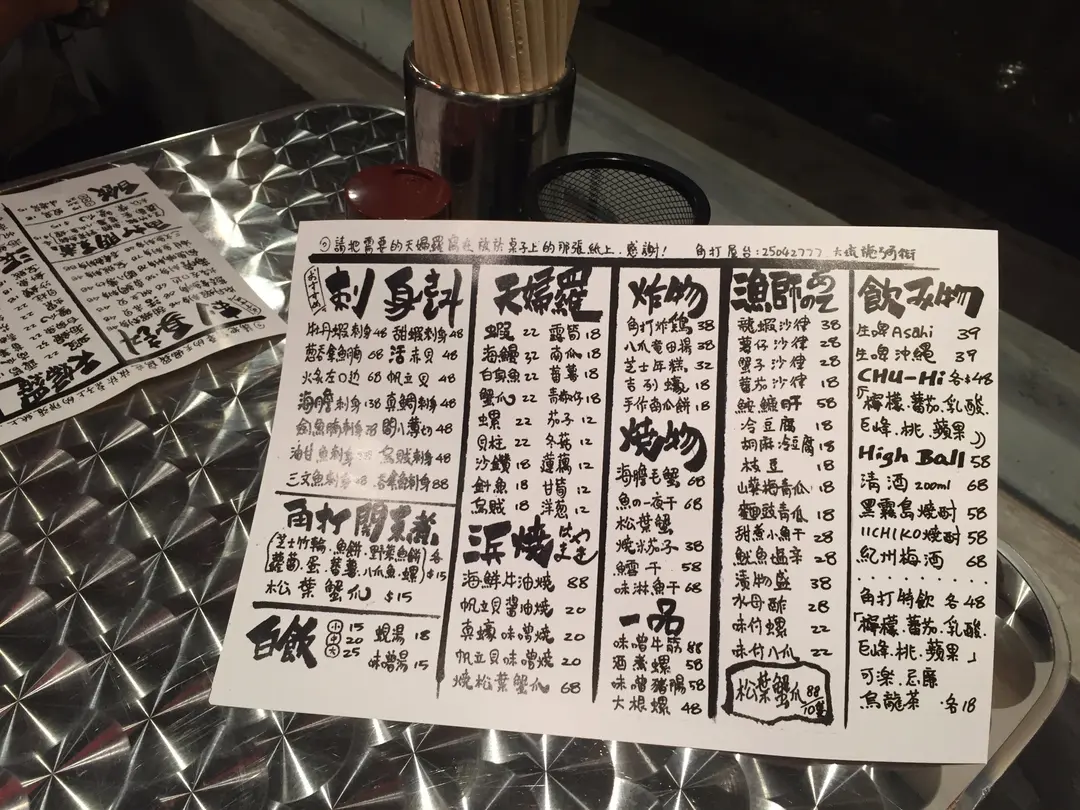 請把需要的天婦羅寫在放於桌子上的那張紙上,感謝!
角打屋台:25042777 大坑施弼街
おすすめ
刺身
牡丹蝦刺身48 甜蝦刺身48
葱吞拿魚腩68 活赤貝48
火炙左口边68 帆立貝48
海膽刺身138 真鯛刺身48
魚腩刺身78 間八薄切48
油甘魚刺身 烏賊刺身48
三文魚刺身48 吞拿魚刺身88
角打關東煮
芝士竹輪.魚餅.野菜魚餅
蘿蔔.蛋.蕃薯.八爪魚.螺
各$15
松葉蟹爪 $15
白飯
小15
中20
大25
蜆湯18
味噌湯15
天婦羅
蝦22 露筍18
海鰻32 南瓜18
白身魚22 蕃薯18
蟹爪22 青椒仔18
螺22 茄子12
貝柱22 冬菇12
沙鑽18 蓮藕12
魷魚18 甘筍12
烏賊18 洋葱12
浜焼 はまやき
海鮮牛油燒88
帆立貝醬油燒20
真蠔味噌燒20
帆立貝味噌燒20
燒松葉蟹爪68
炸物
角打炸鷄38
八爪竜田揚38
芝士年糕32
吉列蠔18
手作南瓜餅18
燒物
海膽毛蟹68
魚の一夜干68
松葉蟹
燒茄子38
鱈干58
味淋魚干68
一品
味噌牛筋88
酒煮螺58
味噌豬腸58
大根螺48
漁師のあて
龍蝦沙律38
薯仔沙律28
蟹子沙律28
蕃茄沙律18
鮟鱇肝58
冷豆腐18
胡麻冷豆腐18
枝豆18
山葵梅青瓜18
麵豉青瓜18
甜煮小魚干28
魷魚塩辛28
漬物盛38
水母酢28
味付螺22
味付八爪22
松葉蟹爪88/10隻
飲み物
生啤Asahi 39
生啤沖繩 39
CHU-Hi各$48
「檸檬.蕃茄.乳酸.
巨峰.桃.蘋果」
High Ball58
清酒200ml 68
黑霧島燒酎58
IICHIKO燒酎58
紀州梅酒68
角打特飲各48
「檸檬.蕃茄.乳酸.
巨峰.桃.蘋果」
可樂.忌廉
烏龍茶 各18